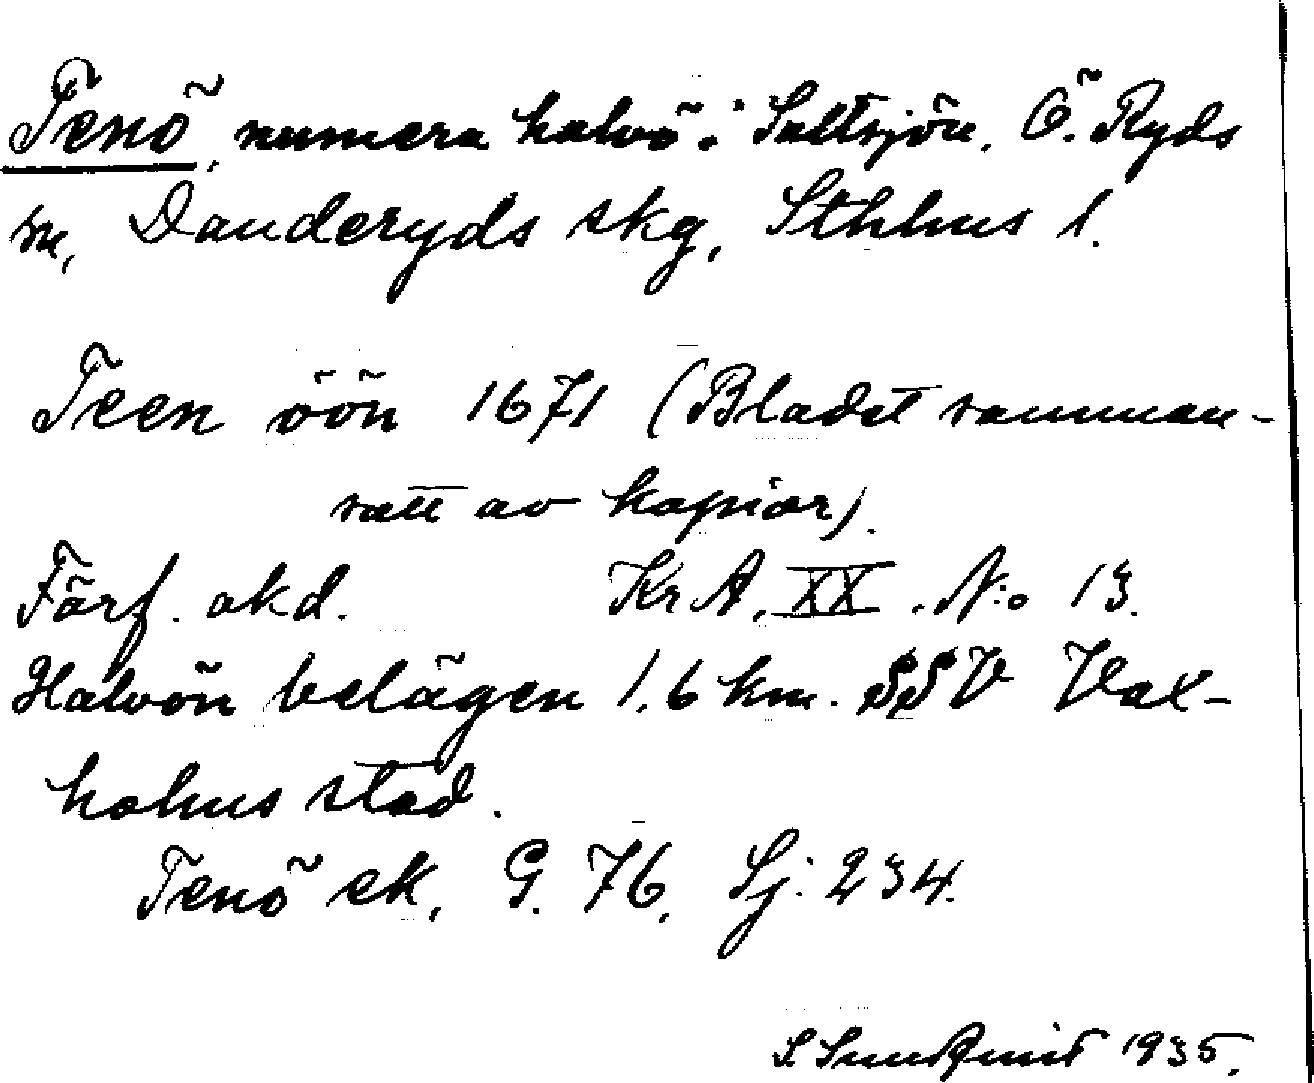 Tenö, numera halvö i Saltsjön, Ö. Ryds
sn, Danderyds skg, Sthlms l.
Teen öön 1671 (Bladet samman-
satt av kopior).
Förf. okd. Kr A, XX. N:o 13.
Halvön belägen 1,6 km. SSV Vax-
holms stad.
Tenö ek. G. 76, Sj. 234.
S Sundqvist 1935.